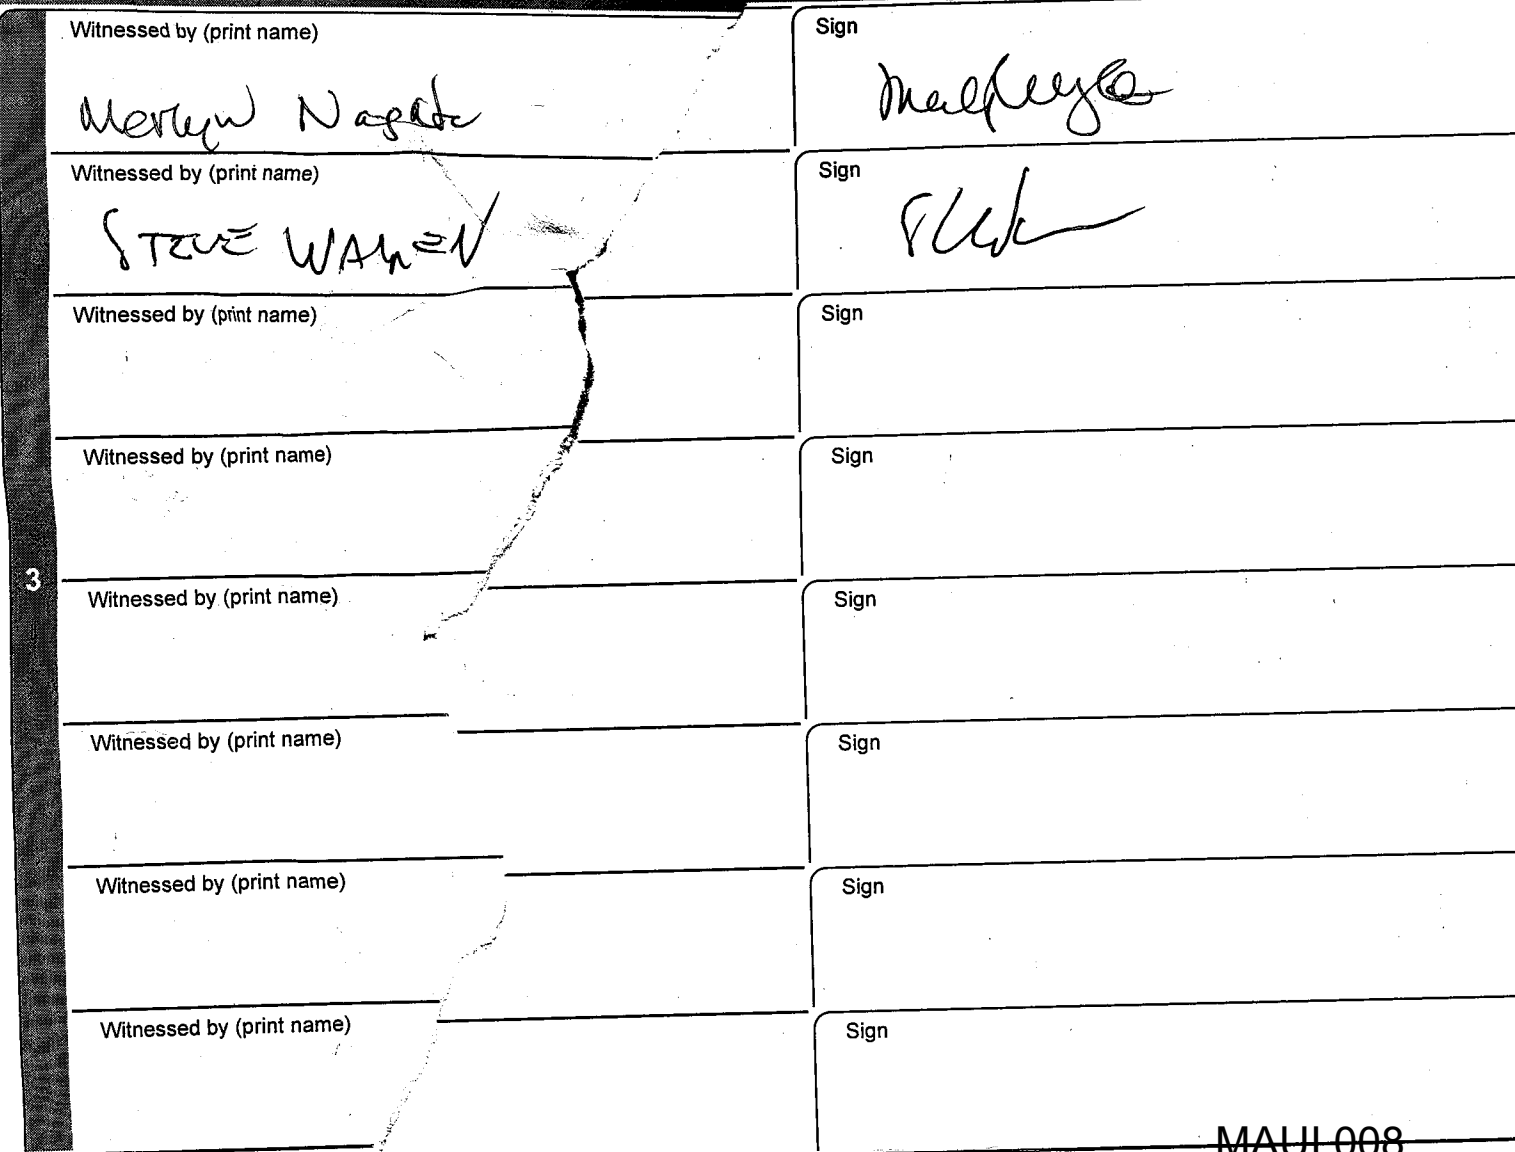 Witnessed by (print name) Sign
Merlyn Nagata
Witnessed by (print name) Sign
STEVE
Witnessed by (print name) Sign
Witnessed by (print name) Sign
3
Witnessed by (print name) Sign
Witnessed by (print name) Sign
Witnessed by (print name) Sign
Witnessed by (print name) Sign
MAUI 008